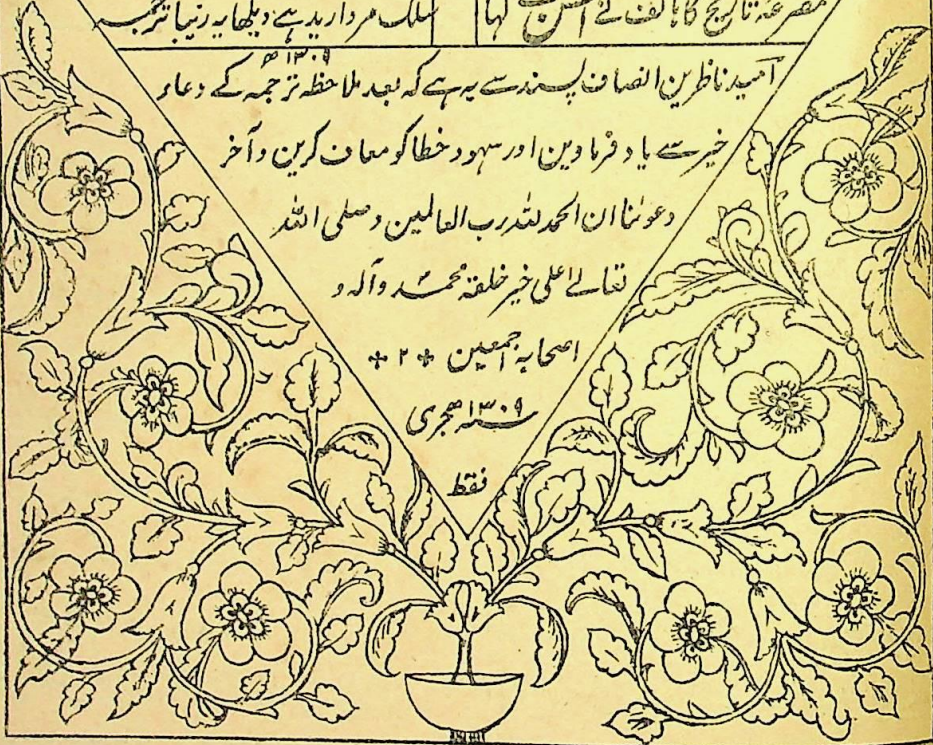 مصرعہ تاریخ کا ہاتف نے احسن کہا
سلک مروارید ہے دیکھا یہ زیبا ترجمہ
۱۳۰۹ھ
امید ناظرین انصاف پسند سے یہ ہے کہ بعد ملاحظہ ترجمہ کے دعاء
خیر سے یاد فرماوین اور سہو و خطا کو معاف کرین و آخر
دعوٰنا ان الحمد للہ رب العالمین و صلی اللہ
تعالےٰ اعلی خیر خلقہ محمد وآلہ و
اصحابہ اجمعین ۲
سنہ ۱۳۰۹ ہجری
فقط